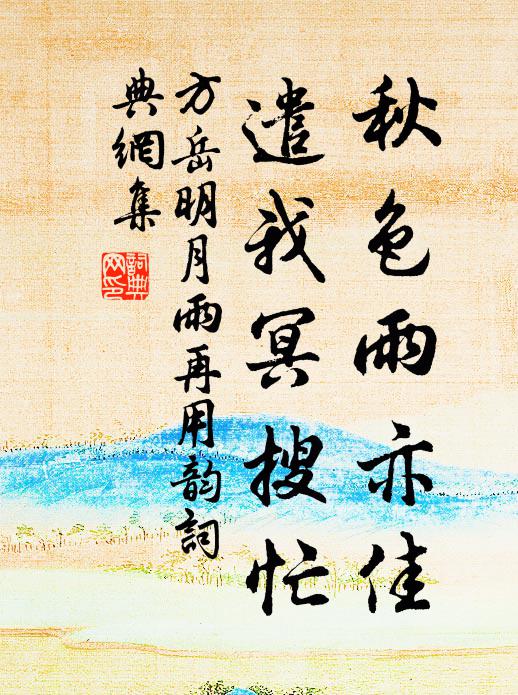 秋色雨亦佳
遣我冥搜忙
方岳明月雨再用韵詞
典網集
詞典
网印